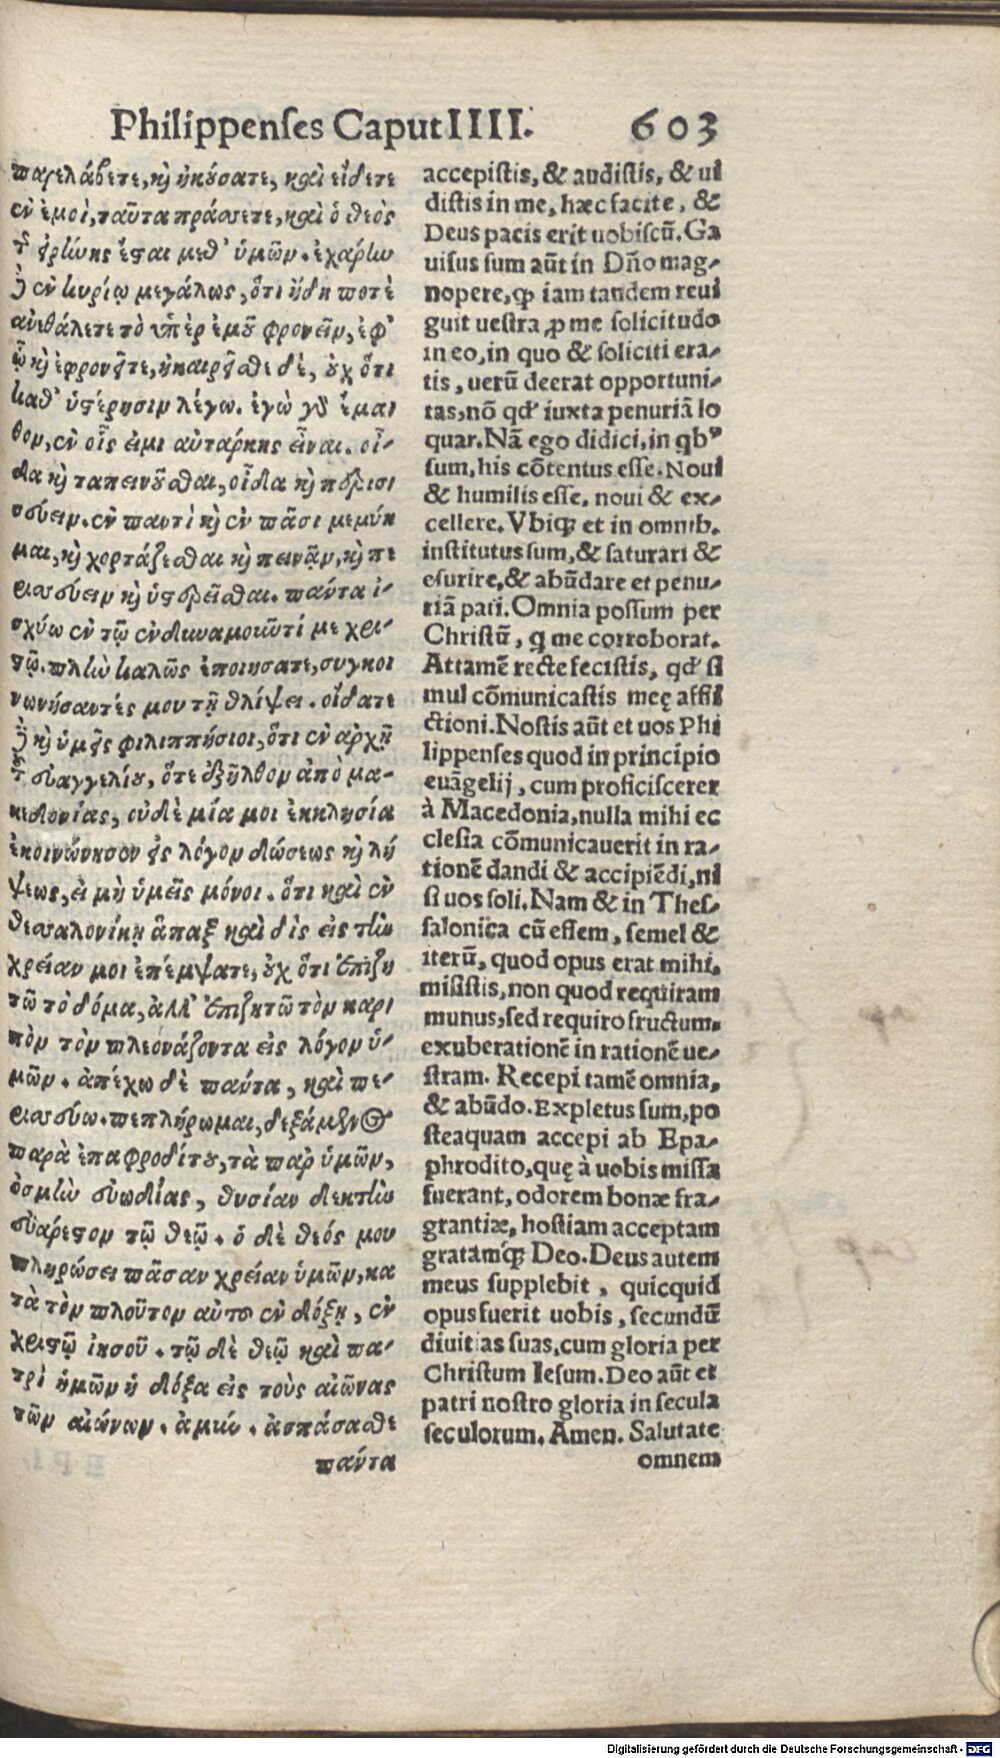 Philippenses Caput IIII. 603
παρελάβετε, κỳ ἠκούσατε, καὶ εἴδετε
ἐν ἐμοὶ, ταῦτα πράσσετε, καὶ ὁ θεὸς
τ῀ εἰρήνης ἔσται μεθ' ὑμῶν. ἐχάρην
δὲ ἐν κυρίῳ μεγάλως, ὅτι ἤδη ποτὲ
ἀνεθάλετε τὸ ὑπὲρ ἐμοῦ φρονεῖν, ἐφ'
ᾧ κỳ ἐφρονεῖτε, ἠκαιρεῖσθε δὲ, οὐχ ὅτι
καθ' ὑστέρησιν λέγω. ἐγὼ γὸ ἔμαι
θον, ἐν οἷς εἰμι αὐτάρκης εἶναι. οἶ-
δα κỳ ταπεινοῦσθαι, οἶδα κỳ περισι
σσεύειν. ἐν παντὶ κỳ ἐν πᾶσι μεμύη
μαι, κỳ χορτάζεσθαι κỳ πεινᾷν, κỳ πε
ρισσεύειν κỳ ὑστερεῖσθαι. πάντα ἰ-
σχύω ἐν τῷ ἐνδυναμοιωῦτί με χρι-
στῷ. πλὴν καλῶς ἐποιήσατε, συγκοι
νωνήσαντές μου τῇ θλίψει. οἴδατε
δὲ κỳ ὑμεῖς φιλιππήσιοι, ὅτι ἐν ἀρχῇ
τ῀ εὐαγγελίου, ὅτε ἐξῆλθον ἀπὸ μα-
κεδονίας, οὐδὲ μία μοι ἐκκλησία
ἐκοινώνησον εἰς λόγον δώσεως κỳ λή
ψεως, εἰ μὴ ὑμεῖς μόνοι. ὅτι καὶ ἐν
θεσσαλονίκῃ ἅπαξ καὶ δὶς εἰς τὴν
χρείαν μοι ἐπέμψατε, οὐχ ὅτι ἐπιζη
τῶ τὸ δόμα, ἀλλ' ἐπιζητῶ τὸν καρι
πὸν τὸν πλεονάζοντα εἰς λόγον ὑ-
μῶν. ἀπέχω δὲ πάντα, καὶ πε-
ρισσεύω. πεπλήρωμαι, δεξάμενος
παρὰ ἐπαφροδίτου, τὰ παρ' ὑμῶν,
ὀσμὴν εὐωδίας, θυσίαν δεκτὴν
εὐάρεστον τῷ θεῷ. ὁ δὲ θεός μου
πληρώσει πᾶσαν χρείαν ὑμῶν, κα
τὰ τὸν πλοῦτον αὐτοῦ ἐν δόξῃ, ἐν
χριστῷ ἰησοῦ. τῷ δὲ θεῷ καὶ πα-
τρὶ ἡμῶν ἡ δόξα εἰς τοὺς αἰῶνας
τῶν αἰώνων. ἀμήν. ἀσπάσασθε
πάντα
accepistis, & audistis, & ui
distis in me, hæc facite, &
Deus pacis erit uobiscũ. Ga
uisus sum aũt in Dño mag-
nopere, ꝙ iam tandem reui
guit uestra ꝓ me solicitudo
in eo, in quo & soliciti era-
tis, uerũ deerat opportuni-
tas, nõ qđ iuxta penuriã lo
quar. Nã ego didici, in qbꝰ
sum, his cõtentus esse. Noui
& humilis esse, noui & ex-
cellere. Vbiqꝫ et in omnib.
institutus sum, & saturari &
esurire, & abũdare et penu-
riã pati. Omnia possum per
Christũ, q me corroborat.
Attamẽ recte fecistis, qđ si
mul cõmunicastis meę affli
ctioni. Nostis aũt et uos Phi
lippenses quod in principio
euãgelij, cum proficiscerer
à Macedonia, nulla mihi ec
clesia cõmunicauerit in ra-
tionẽ dandi & accipiẽdi, ni
si uos soli. Nam & in Thes-
salonica cũ essem, semel &
iterũ, quod opus erat mihi,
misistis, non quod requiram
munus, sed requiro fructum,
exuberationẽ in rationẽ ue-
stram. Recepi tamẽ omnia,
& abũdo. Expletus sum, po
steaquam accepi ab Epa-
phrodito, quę à uobis missa
fuerant, odorem bonæ fra-
grantiæ, hostiam acceptam
gratamqꝫ Deo. Deus autem
meus supplebit, quicquid
opus fuerit uobis, secundũ
diuitias suas, cum gloria per
Christum Iesum. Deo aũt et
patri nostro gloria in secula
seculorum. Amen. Salutate
omnem
Digitalisierung gefördert durch die Deutsche Forschungsgemeinschaft - DFG